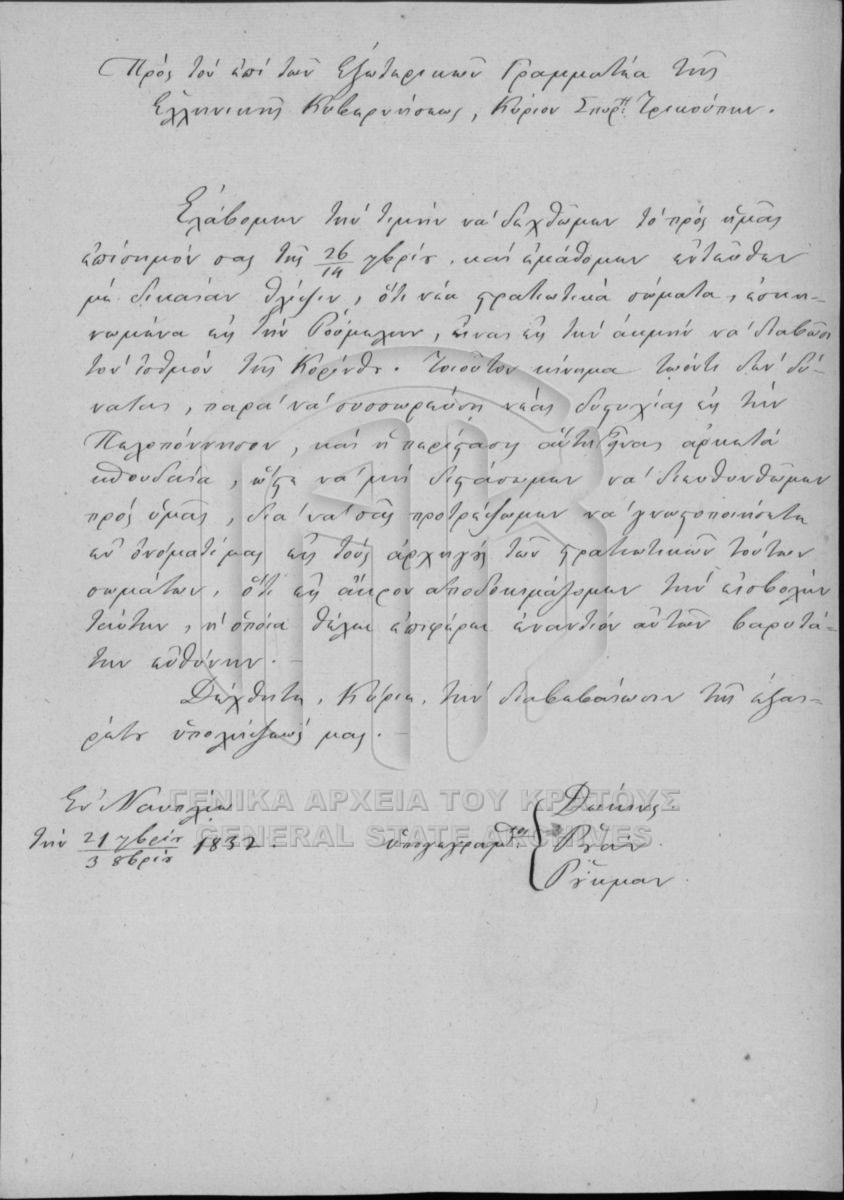 Πρὸς τὸν ἐπὶ τῶν Ἐξωτερικῶν Γραμματέα τῆς
Ἑλληνικῆς Κυβερνήσεως, Κύριον Σπυρ. Τρικούπην.
Ἐλάβομεν τὴν τιμὴν νὰ δεχθῶμεν τὸ πρὸς ἡμᾶς
ἐπίσημόν σας τῆς 26/14 7βρίου, καὶ ἐμάθομεν ἐντεῦθεν
μὲ δικαίαν θλίψιν, ὅτι νέα στρατιωτικὰ σώματα, ἐσκη-
νωμένα εἰς τὴν Ρούμελην, εἶναι εἰς τὴν ἀκμὴν νὰ διαβῶσι
τὸν ἰσθμὸν τῆς Κορίνθου. Τοιοῦτον κίνημα τωόντι δὲν δύ-
ναται, παρὰ νὰ συσσωρεύσῃ νέας δυστυχίας εἰς τὴν
Πελοπόννησον, καὶ ἡ περίστασις αὕτη εἶναι ἀρκετὰ
σπουδαία, ὥστε νὰ μὴ διστάσωμεν νὰ διευθυνθῶμεν
πρὸς ὑμᾶς, διὰ νὰ σᾶς προτρέψωμεν νὰ γνωστοποιήσετε
ἐν ὀνόματί μας εἰς τοὺς ἀρχηγοὺς τῶν στρατιωτικῶν τούτων
σωμάτων, ὅτι εἰς ἄκρον ἀποδοκιμάζομεν τὴν εἰσβολὴν
ταύτην, ἡ ὁποία θέλει ἐπιφέρει ἐναντίον αὐτῶν βαρυτά-
την εὐθύνην. —
Δέχθητε, Κύριε, τὴν διαβεβαίωσιν τῆς ἐξαι-
ρέτου ὑπολήψεώς μας. —
Ἐν Ναυπλίῳ
τὴν 21 7βρίου/3 8βρίου 1832.
ὑπογεγραμ.
Δώκινς
Ρουὰν
Ρύκμαν
ΓΕΝΙΚΑ ΑΡΧΕΙΑ ΤΟΥ ΚΡΑΤΟΥΣ
GENERAL STATE ARCHIVES